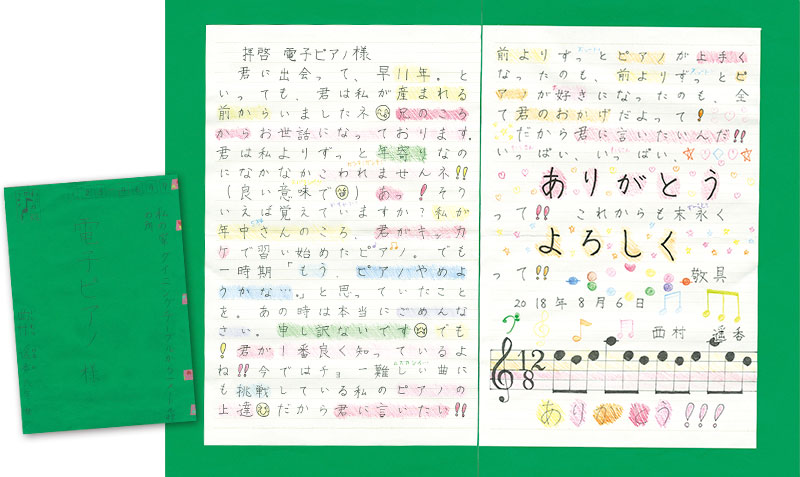 電子ピアノ様
拝啓 電子ピアノ様
君に出会って、早11年。と
いっても、君は私が産まれる
前からいましたネ 兄のころ
からお世話になっております。
君は私よりずっと年寄りなの
になかなかこわれませんネ!!
(良い意味で)あっ!そう
いえば覚えていますか?私が
年中さんのころ、君がキッカ
ケで習い始めたピアノ。でも
一時期「もう、ピアノやめよ
うかない。」と思っていたこと
を。あの時は本当にごめんな
さい。申し訳ないです でも
!君が1番良く知っているよ
ね!!今ではチョー難しい曲に
も挑戦している私のピアノの
上達 だから君に言いたい!!
前よりずっとピアノが上手く
なったのも、前よりずっとピ
アノが好きになったのも、全
て君のおかげだよって!
だから君に言いたいんだ!!
いっぱい、いっぱい、
ありがとう
って!! これからも末永く
よろしく
って!! 敬具
2018年8月6日
西村 遥香
12
8
ありがとう!!!